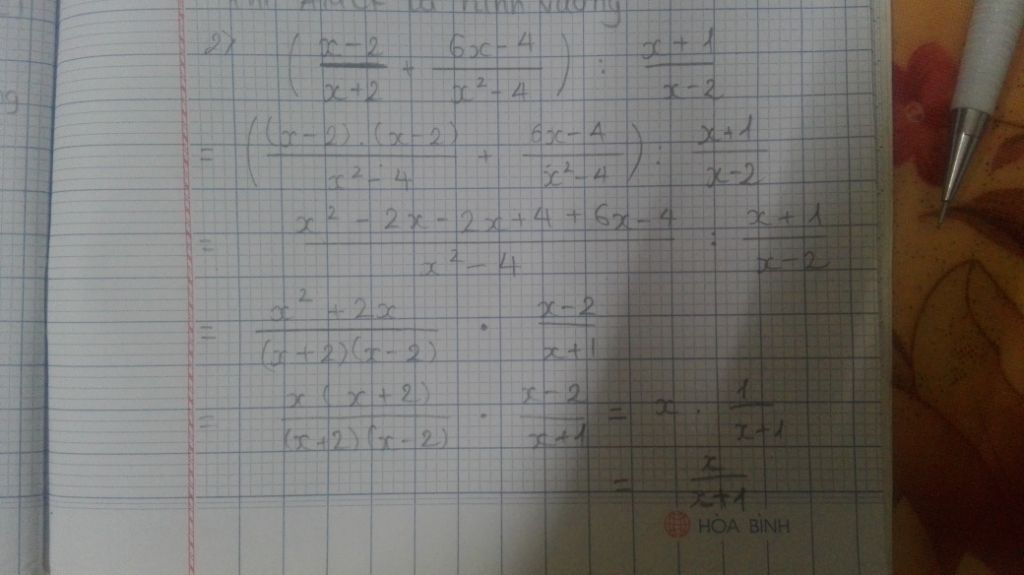 2) ( (x-2)/(x+2) + (6x-4)/(x²-4) ) : (x+1)/(x-2)
= ( ((x-2).(x-2))/(x²-4) + (6x-4)/(x²-4) ) : (x+1)/(x-2)
= (x² - 2x - 2x + 4 + 6x - 4)/(x² - 4) : (x+1)/(x-2)
= (x² + 2x)/((x+2)(x-2)) . (x-2)/(x+1)
= (x(x+2))/((x+2)(x-2)) . (x-2)/(x+1) = x . 1/(x+1)
= x/(x+1)
HÒA BÌNH